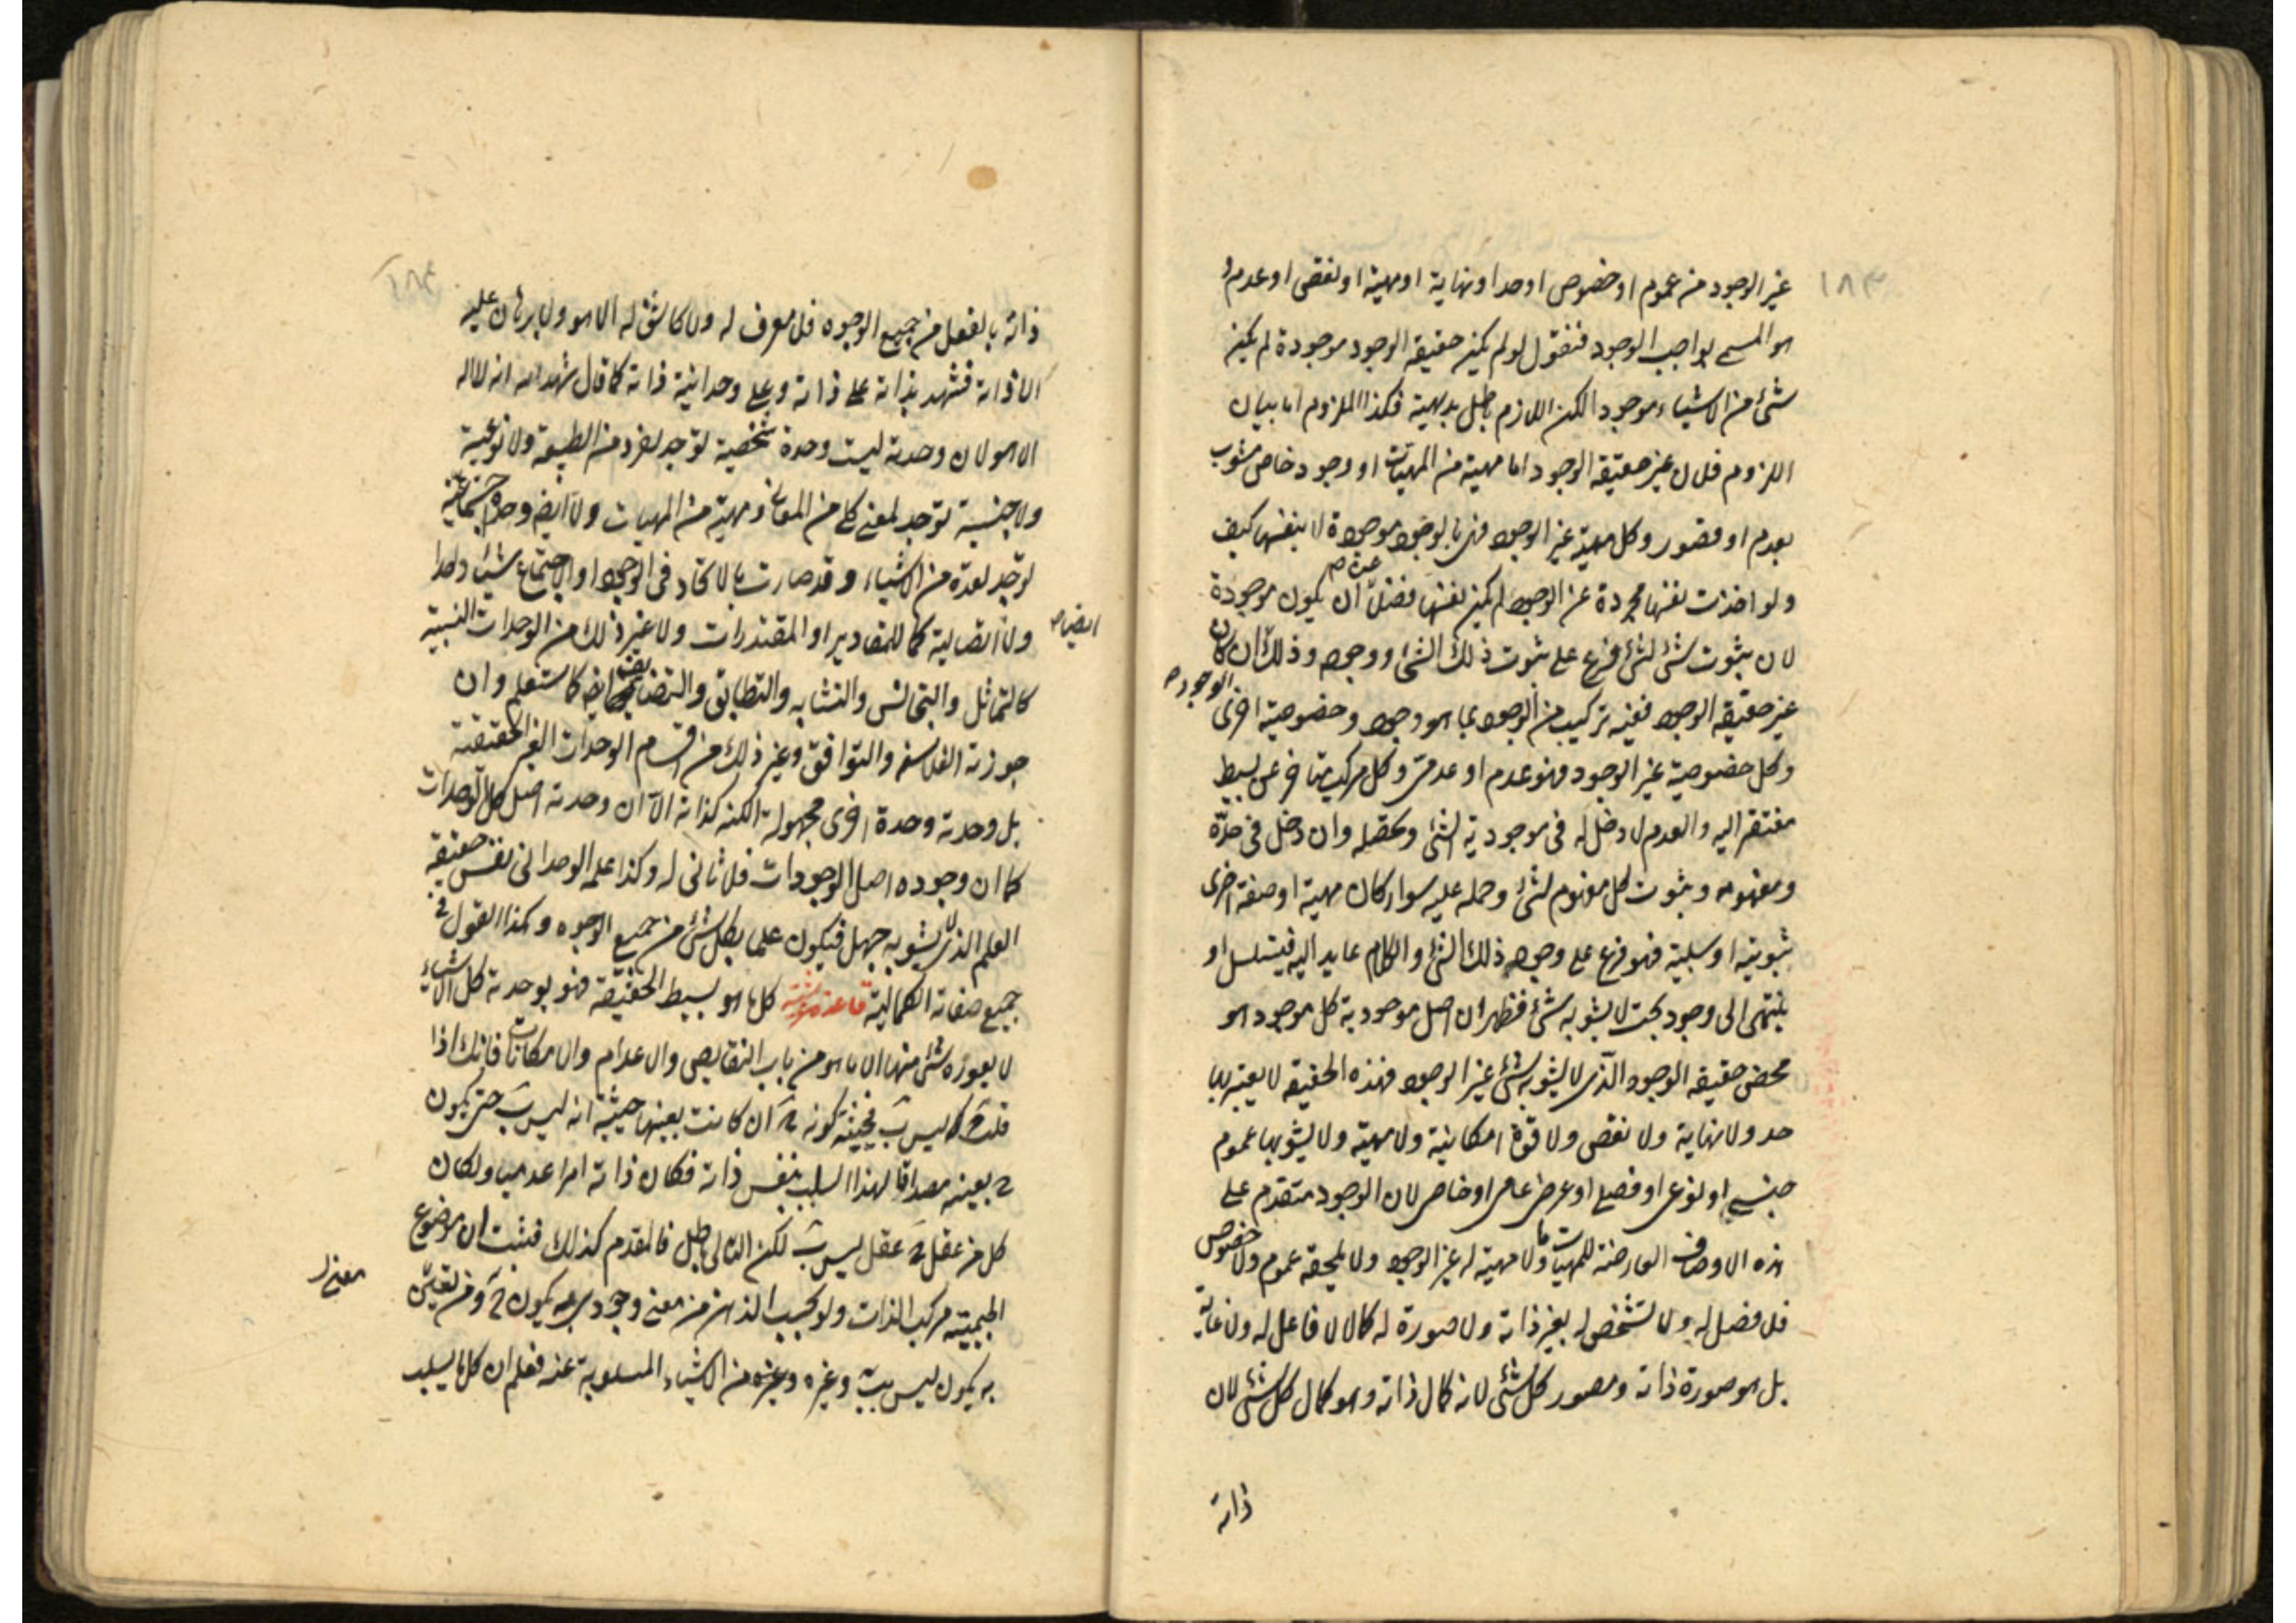 ١٨٣
غير الوجود من عموم او خصوص او حد او نهاية او مهية او نقص او عدم و
هو المسمى بواجب الوجود فنقول لو لم يكن حقيقة الوجود موجودة لم يكن
شئ من الاشياء موجودا لكن اللازم باطل بديهية فكذا الملزوم اما بيان
اللزوم فلان غير حقيقة الوجود اما مهية من المهيات او وجود خاص مشوب
بعدم او قصور وكل مهية غير الوجود فهى بالوجود موجودة لا بنفسها كيف
ولو اخذت نفسها مجردة عن الوجود لم يكن نفسها نفسها فضلا عن ان يكون موجودة
لان ثبوت شئ لشئ فرع على ثبوت ذلك الشئ ووجوده وذلك الوجود ان كان
غير حقيقة الوجود ففيه تركيب من الوجود بما هو وجود وخصوصية اخرى
وكل خصوصية غير الوجود فهو عدم او عدمى وكل مركب متاخر عن بسيط
مفتقر اليه والعدم لا دخل له فى موجودية الشئ وتحصله وان دخل فى حده
ومفهومه وثبوت كل مفهوم لشئ وحمله عليه سواء كان مهية او صفة اخرى
ثبوتية او سلبية فهو فرع على وجود ذلك الشئ والكلام عايد اليه فيتسلسل او
ينتهى الى وجود بحت لا يشوبه شئ فظهر ان اصل موجودية كل موجود هو
محض حقيقة الوجود الذى لا يشوبه شئ غير الوجود فهذه الحقيقة لا يعتريها
حد ولا نهاية ولا نقص ولا قوة امكانية ولا مهية ولا يشوبها عموم
جنسى او نوعى او فصلى او عرض عام او خاص لان الوجود متقدم على
هذه الاوصاف العارضة للمهيات وما لا مهية له غير الوجود ولا يلحقه عموم ولا خصوص
فلا فصل له ولا تشخص له بغير ذاته ولا صورة له كما لا فاعل له ولا غاية
بل هو صورة ذاته ومصور كل شئ لانه كمال ذاته وهو كمال كل شئ لان
ذاته
١٨٤
ذاته بالفعل من جميع الوجوه فلا معرف له ولا كاشف له الا هو ولا برهان عليه
الا ذاته فشهد بذاته على ذاته وعلى وحدانية ذاته كما قال شهد الله انه لا اله
الا هو لان وحدته ليست وحدة شخصية توجد لفرد من الطبيعة ولا نوعية
ولا جنسية توجد لمعنى كلى من المعانى ومهية من المهيات ولا ايضا وحدة اجتماعية
توجد لعدة من الاشياء وقد صارت بالاتحاد فى الوجود او الاجتماع شيئا واحدا
ولا اتصالية كما للمقادير او المقتدرات ولا غير ذلك من الوحدات النسبية
كالتماثل والتجانس والتشابه والتطابق والتضايف ايضا كما ستعلم وان
جوزته الفلاسفة والتوافق وغير ذلك من اقسام الوحدات الغير الحقيقية
بل وحدته وحدة اخرى مجهولة الكنه كذاته الا ان وحدته اصل كل الوحدات
كما ان وجوده اصل الوجودات فلا ثانى له وكذا علمه الوحدانى نفس حقيقة
العلم الذى لا يشوبه جهل فيكون علما بكل شئ من جميع الوجوه وهكذا القول فى
جميع صفاته الكمالية قاعدة مشرقية كل ما هو بسيط الحقيقة فهو بوحدته كل الاشياء
لا يعوزه شئ منها الا ما هو من باب النقايص والاعدام والامكانات فانك اذا
قلت ج ليس ب فحيثية كونه ج ان كانت بعينها حيثية انه ليس ب حتى يكون
ج بعينه مصداقا لهذا السلب بنفس ذاته فكان ذاته امرا عدميا ولكان
كل من عقل ج عقل ليس ب لكن التالى باطل فالمقدم كذلك فثبت ان موضوع
الجيمية مركب الذات ولو بحسب الذهن من معنى وجودى به يكون ج ومن معنى
به يكون ليس ب وغيره وغيره من الاشياء المسلوبة عنه فعلم ان كل ما يسلب